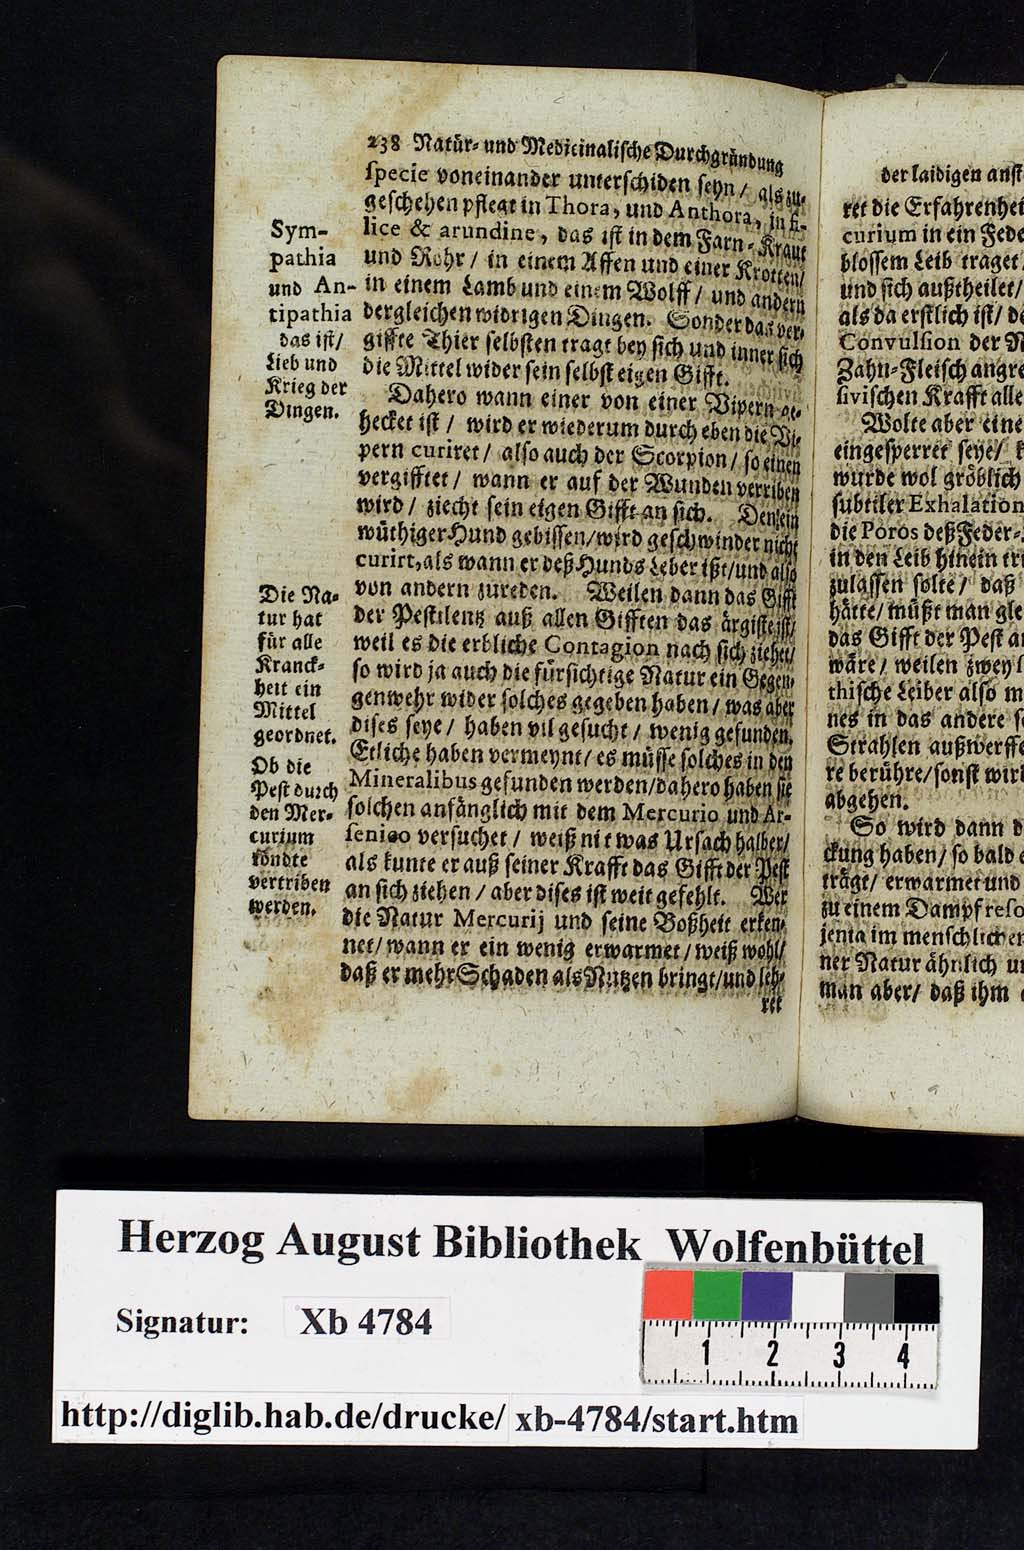 238 Natür- und Medicinalische Durchgründung
specie voneinander unterschiden seyn/ als zu-
geschehen pflegt in Thora, und Anthora, in fi-
lice & arundine, das ist in dem Farn-Kraut
und Rohr/ in einem Affen und einer Krotten/
in einem Lamb und einem Wolff/ und andern
dergleichen widrigen Dingen. Sonder das ver-
giffte Thier selbsten tragt bey sich und inner sich
die Mittel wider sein selbst eigen Gifft.
Dahero wann einer von einer Vipern ge-
hecket ist/ wird er wiederum durch eben die Vi-
pern curiret/ also auch der Scorpion/ so einen
vergifftet/ wann er auf der Wunden verriben
wird/ ziecht sein eigen Gifft an sich. Den ein
wüthiger Hund gebissen/ wird geschwinder nicht
curirt, als wann er deß Hunds Leber ißt/ und also
von andern zureden. Weilen dann das Gifft
der Pestilentz auß allen Gifften das ärgiste ist/
weil es die erbliche Contagion nach sich ziehet/
so wird ja auch die fürsichtige Natur ein Gegen-
genwehr wider solches gegeben haben/ was aber
dises seye/ haben vil gesucht/ wenig gefunden.
Etliche haben vermeynt/ es müsse solches in den
Mineralibus gefunden werden/ dahero haben sie
solchen anfänglich mit dem Mercurio und Ar-
senico versuchet/ weiß nit was Ursach halber/
als kunte er auß seiner Krafft das Gifft der Pest
an sich ziehen/ aber dises ist weit gefehlt. Wer
die Natur Mercurij und seine Boßheit erken-
net/ wann er ein wenig erwarmet/ weiß wohl/
daß er mehr Schaden als Nutzen bringt/ und leh-
ret
Sym-
pathia
und An-
tipathia
das ist/
Lieb und
Krieg der
Dingen.
Die Na-
tur hat
für alle
Kranck-
heit ein
Mittel
geordnet.
Ob die
Pest durch
den Mer-
curium
köndte
vertriben
werden.
der laidigen anst
ret die Erfahrenhei
curium in ein Fede
blossem Leib traget
und sich außtheilet/
als da erstlich ist/ de
Convulsion der N
Zahn-Fleisch angre
sivischen Krafft alle
Wolte aber eine
eingesperret seye/ k
wurde wol gröblich
subtiler Exhalation
die Poros deß Feder-
in den Leib hinein tri
zulassen solte/ daß
hätte/ müßt man gle
das Gifft der Pest an
wäre/ weilen zwey s
thische Leiber also m
nes in das andere se
Strahlen außwerffe
re berühre/ sonst wird
abgehen.
So wird dann d
ckung haben/ so bald e
trägt/ erwarmet und
zu einem Dampf reso
jenta im menschlichen
ner Natur ähnlich un
man aber/ daß ihm
Herzog August Bibliothek Wolfenbüttel
Signatur: Xb 4784
1 2 3 4
http://diglib.hab.de/drucke/ xb-4784/start.htm